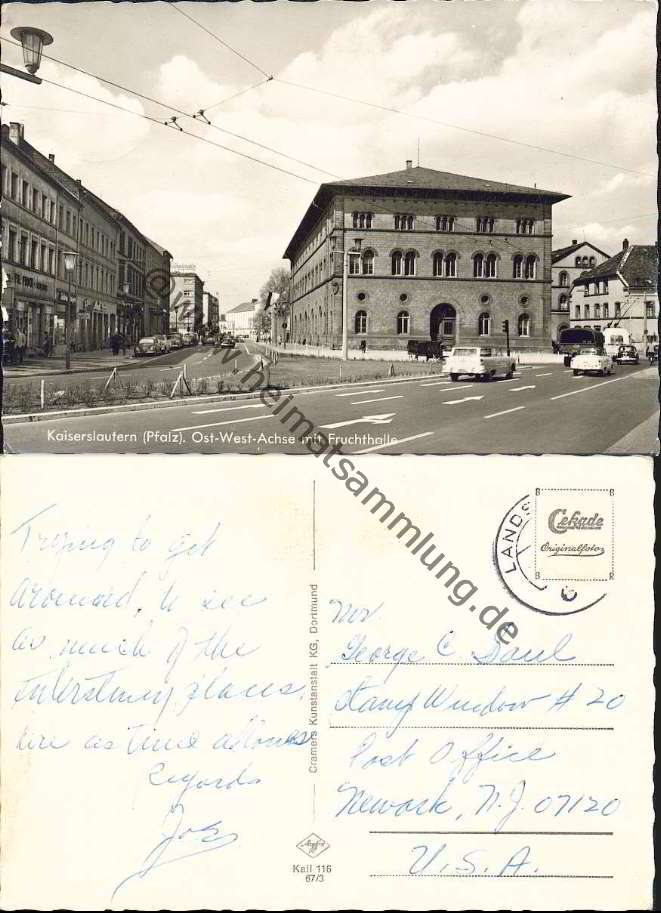 Kaiserslautern (Pfalz). Ost-West-Achse mit Fruchthalle
© www.heimatsammlung.de
Trying to get
around, to see
as much of the
interesting places
here as time allows
Regards
Joe
Cramers Kunstanstalt KG, Dortmund
Kail 116
67/3
LANDS
B B
Cekade
Originalfotos
B R
Mr
George C. Saul
Stamp Window # 20
Post Office
Newark, N.J. 07120
U.S.A.